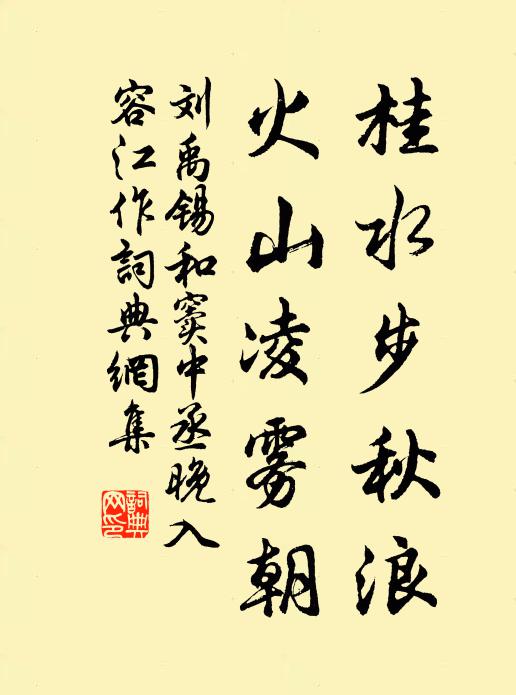 桂水步秋浪
火山凌雾朝
刘禹锡和窦中丞晚入
容江作詞典網集
詞典
网印